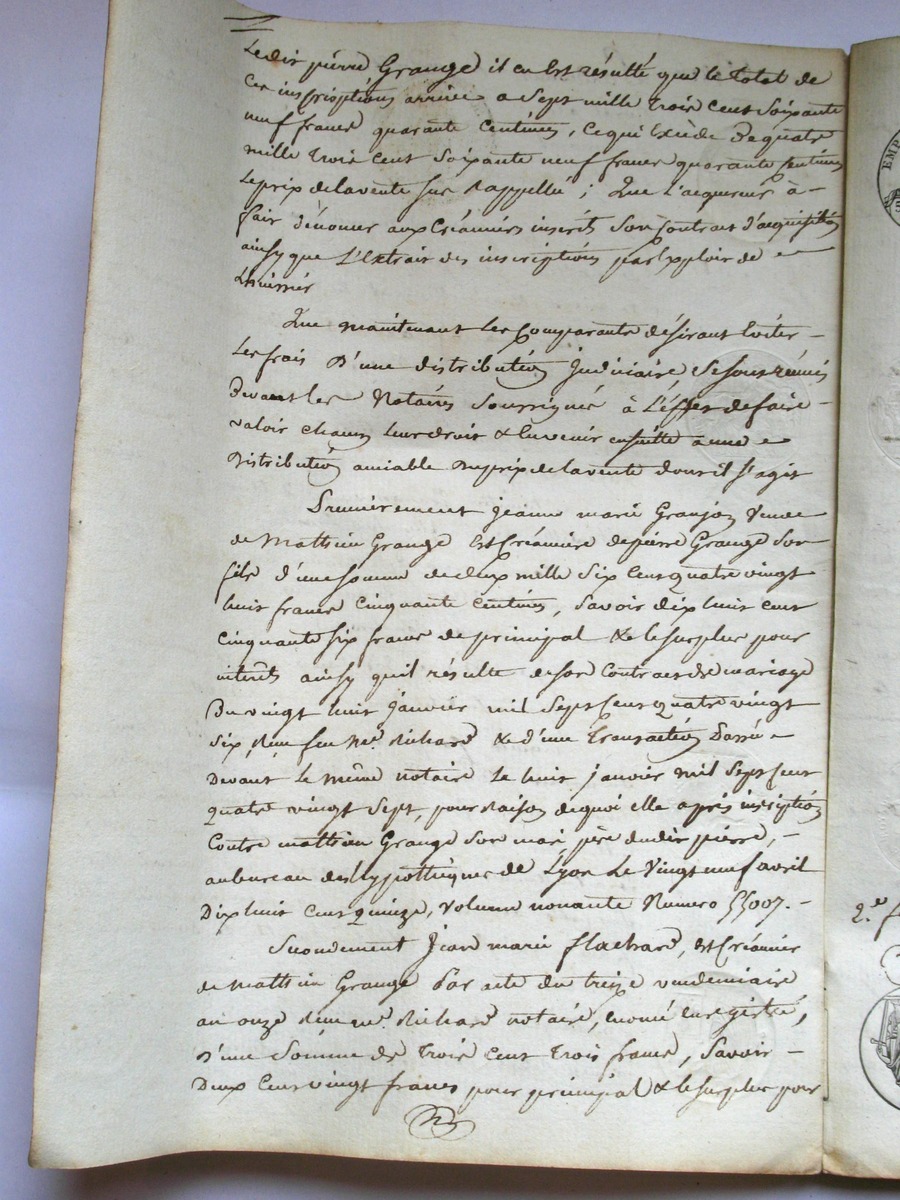 Ledit pierre Grange il en est résulté que le total de
ces inscriptions arrive a sept mille trois cent soixante
neuf francs quarante centimes, ce qui exède de quatre
mille trois cent soixante neuf francs quarante centimes
le prix de la vente sus rappellé; Que l'acquereur à -
fait dénoncer aux créanciers inscrits son contrat d'acquisition
ainsy que l'extrait des inscriptions par exploit de
Lhuissier
Que maintenant les comparants désirant éviter -
les frais d'une distribution judiciaire, se sont réunis
devant les Notaires soussignés à l'effet de faire -
valoir chacun leur droit & en venir ensuitte a une
distribution amiable du prix de la vente dont il s'agit
Premierement jeanne marie Granjon veuve
de Mathieu Grange est créanciere de pierre Grange son
fils d'une somme de deux mille six cent quatre vingt
huit francs cinquante centimes, savoir dix huit cent
cinquante six francs de principal & le surplus pour
interêts ainsy qu'il résulte de son contrat de mariage
du vingt huit janvier mil sept cent quatre vingt
six, Reçu feu Me. Richard & d'une transaction passée
devant le même notaire le huit janvier mil sept cent
quatre vingt sept, pour raison de quoi elle a pris inscription
contre mathieu Grange son mari, père dudit pierre, -
au bureau des hypothèques de Lyon le vingt neuf avril
dix huit cent quinze, volume nonante Numero 55007. -
Secondement Jean marie flachard, est créancier
de Mathieu Grange par acte du treize vendemiaire
an onze Reçu me. Richard notaire, enregistré,
d'une somme de trois cent trois francs, savoir -
deux cent vingt francs pour principal & le surplus pour
EMP
2.e